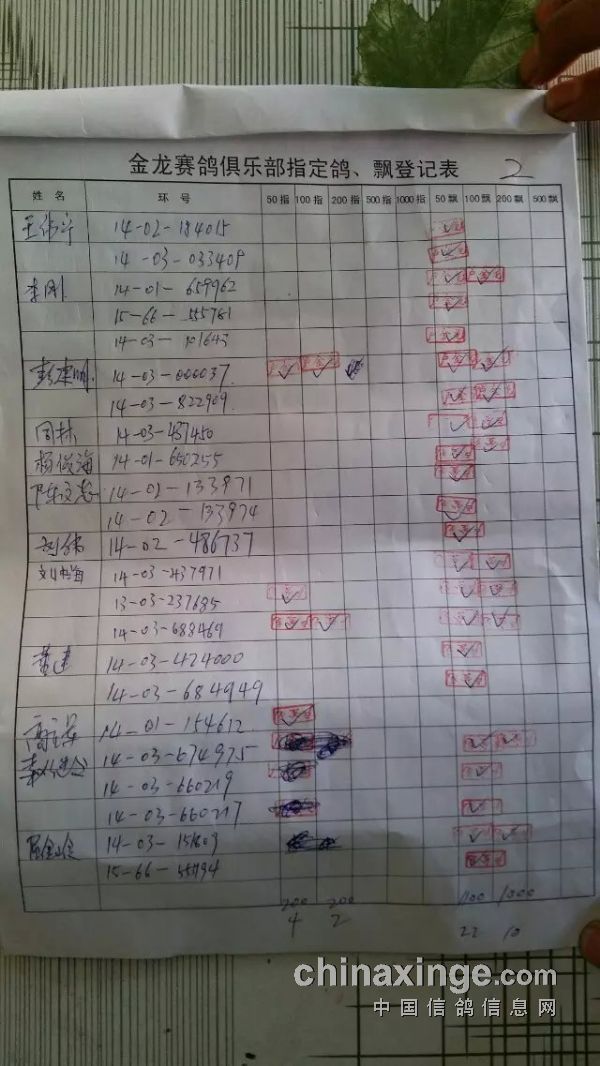 金龙赛鸽俱乐部指定鸽、飘登记表 2
姓名 环号 50指 100指 200指 500指 1000指 50飘 100飘 200飘 500飘
14-02-184015
14-03-033409
李刚 14-01-659962
15-66-
14-03-
彭康明 14-03-000037
14-03-822909
周林 14-03-437450
杨俊海 14-01-650255
陈文志 14-02-133971
14-02-133974
刘伟 14-02-486737
14-03-437971
13-03-237685
14-03-688469
黄建 14-03-424000
14-03-684949
14-01-154612
14-03-674975
14-03-660219
14-03-660217
14-03-
15-66-
200 200 1100 1000
4 2 22 10
chinaxinge.com
中国信鸽信息网